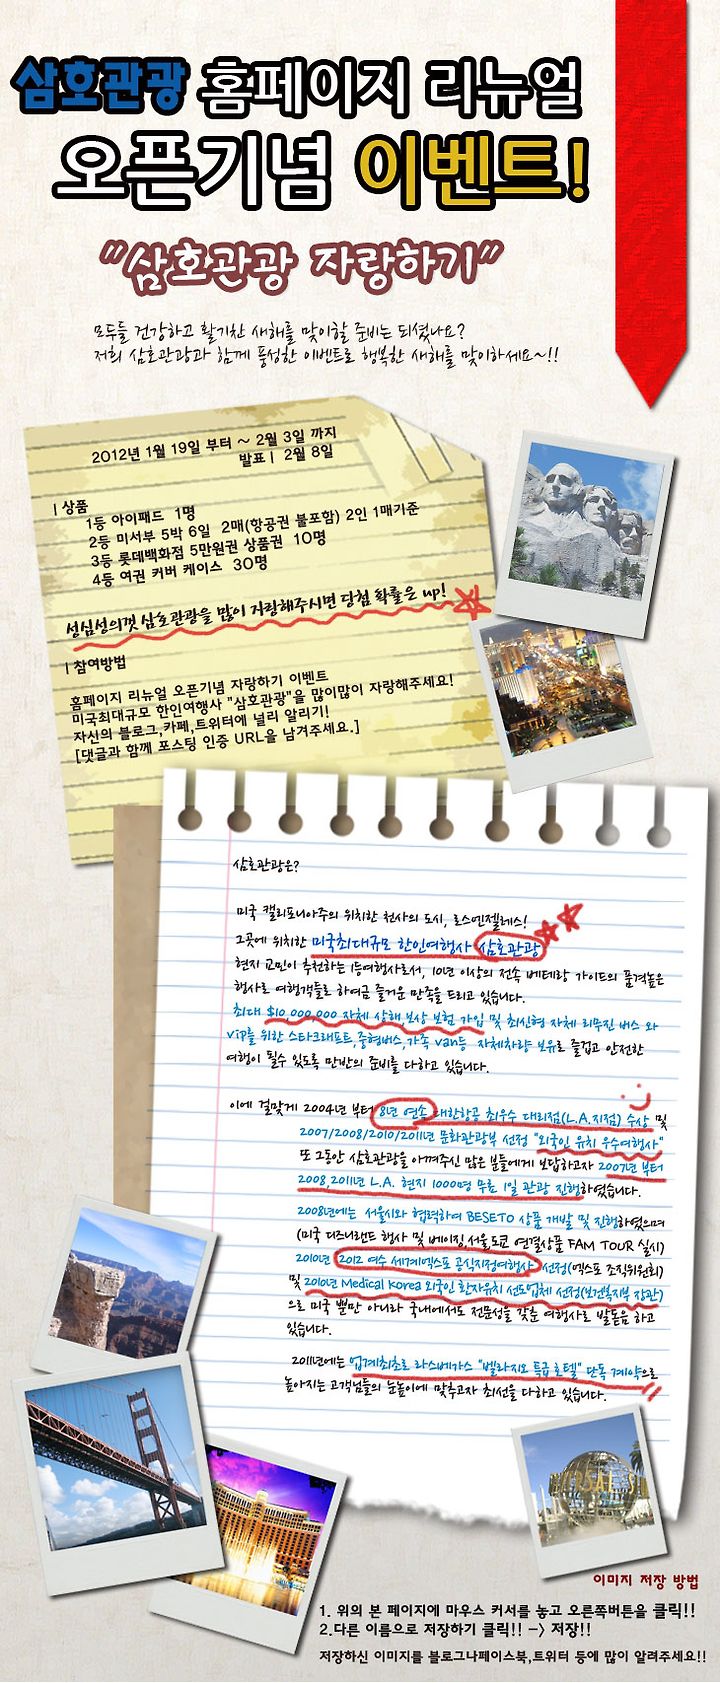 삼호관광 홈페이지 리뉴얼
오픈기념 이벤트!
"삼호관광 자랑하기"
모두들 건강하고 활기찬 새해를 맞이할 준비는 되셨나요?
저희 삼호관광과 함께 풍성한 이벤트로 행복한 새해를 맞이하세요~!!
2012년 1월 19일 부터 ~ 2월 3일 까지
발표 | 2월 8일
| 상품
1등 아이패드 1명
2등 미서부 5박 6일 2매(항공권 불포함) 2인 1매기준
3등 롯데백화점 5만원권 상품권 10명
4등 여권 커버 케이스 30명
성심성의껏 삼호관광을 많이 자랑해주시면 당첨 확률은 up!
| 참여방법
홈페이지 리뉴얼 오픈기념 자랑하기 이벤트
미국최대규모 한인여행사 "삼호관광"을 많이많이 자랑해주세요!
자신의 블로그,카페,트위터에 널리 알리기!
[댓글과 함께 포스팅 인증 URL을 남겨주세요.]
삼호관광은?
미국 캘리포니아주의 위치한 천사의 도시, 로스엔젤레스!
그곳에 위치한 미국최대규모 한인여행사 삼호관광
현지 교민이 추천하는 1등여행사로서, 10년 이상의 전속 베테랑 가이드의 품격높은
행사로 여행객들로 하여금 즐거운 만족을 드리고 있습니다.
최대 $10,000,000 자체 상해보상 보험 가입 및 최신형 자체 리무진 버스 와
vip를 위한 스타크래프트,중형버스,가족 van등 자체차량 보유로 즐겁고 안전한
여행이 될수 있도록 만반의 준비를 다하고 있습니다.
이에 걸맞게 2004년 부터 8년 연속 대한항공 최우수 대리점(L.A.지점) 수상 및
2007/2008/2010/2011년 문화관광부 선정 "외국인 유치 우수여행사"
또 그동안 삼호관광을 아껴주신 많은 분들에게 보답하고자 2007년 부터
2008,2011년 L.A. 현지 1000명 무료 1일 관광 진행하였습니다.
2008년에는 서울시와 협력하여 BESETO 상품 개발 및 진행하였으며
(미국 디즈니랜드 행사 및 베이징,서울,도쿄 연결상품 FAM TOUR 실시)
2010년 2012 여수 세계엑스포 공식지정여행사 선정(엑스포 조직위원회)
및 2010년 Medical Korea 외국인 환자유치 선도업체 선정(보건복지부 장관)
으로 미국 뿐만 아니라 국내에서도 전문성을 갖춘 여행사로 발돋음 하고
있습니다.
2011년에는 업계최초로 라스베가스 "벨라지오 특급 호텔" 단독 계약으로
높아지는 고객님들의 눈높이에 맞추고자 최선을 다하고 있습니다.
이미지 저장 방법
1. 위의 본 페이지에 마우스 커서를 놓고 오른쪽버튼을 클릭!!
2.다른 이름으로 저장하기 클릭!! -> 저장!!
저장하신 이미지를 블로그나페이스북,트위터 등에 많이 알려주세요!!